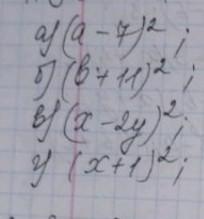 а) (a - 7)² ;
б) (b + 11)² ;
в) (x - 2y)² ;
г) (x + 1)² ;